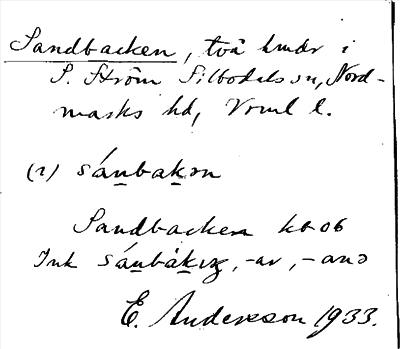 Sandbacken, två hmdr i
S. Ström Silbodals sn, Nord-
marks hd, Vrml l.
(1) sánbakən
Sandbacken kb 06
Ink sánbákıʒ, -ar, -anə
E. Andersson 1933.